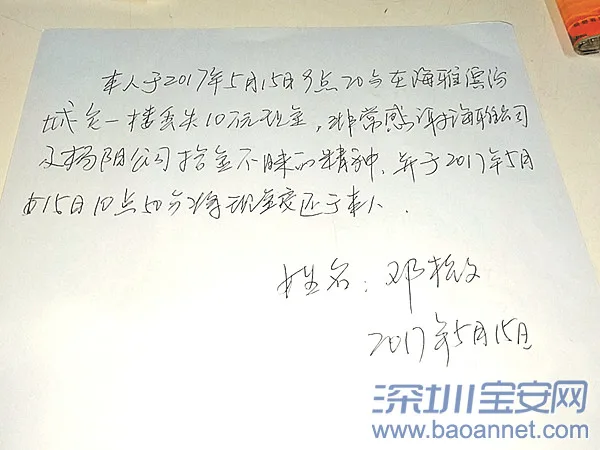 本人于2017年5月15日9点20分在海雅缤纷
城负一楼丢失10万元现金，非常感谢海雅公司
及扬阳公司拾金不昧的精神，并于2017年5月
15日10点50分将现金交还于本人.
姓名：邓
2017年5月15日
深圳宝安网
www.baoannet.com